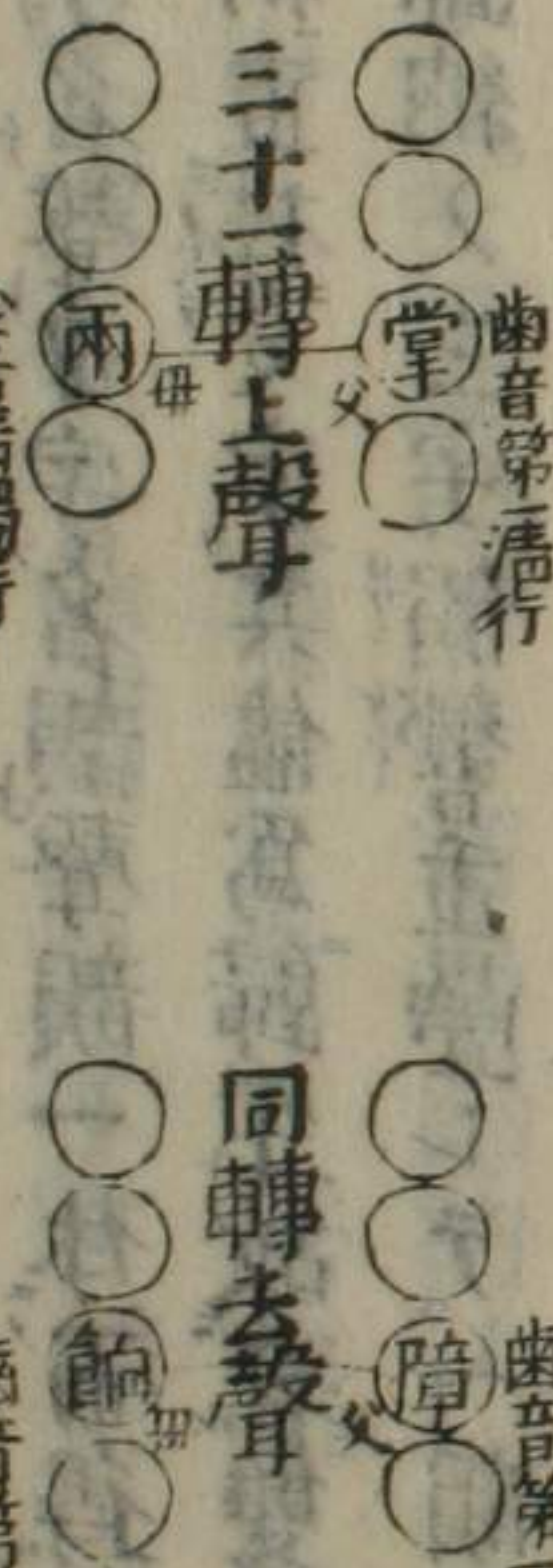 齒音第一清行
掌
父
三十一轉上聲
母
兩
齒音第
障
父
同轉去聲
母
餉